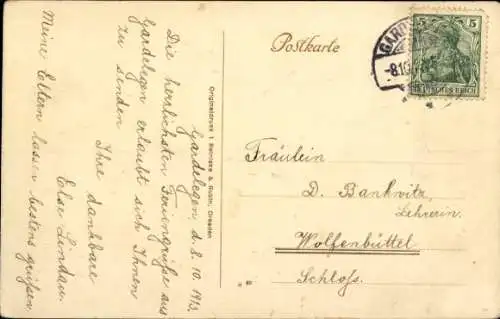 Postkarte
5 5
GARD
-8.10.
DEUTSCHES REICH
Gardelegen, d. 8. 10. 1913.
Die herzlichsten Feriengrüße aus
Gardelegen erlaubt sich Ihnen
zu senden
Ihre dankbare
Else Lindau.
Meine Eltern lassen bestens grüßen
Originaldruck v. Reinicke & Rubin, Dresden
Fräulein
D. Bankwitz,
Lehrerin.
Wolfenbüttel
Schloss.